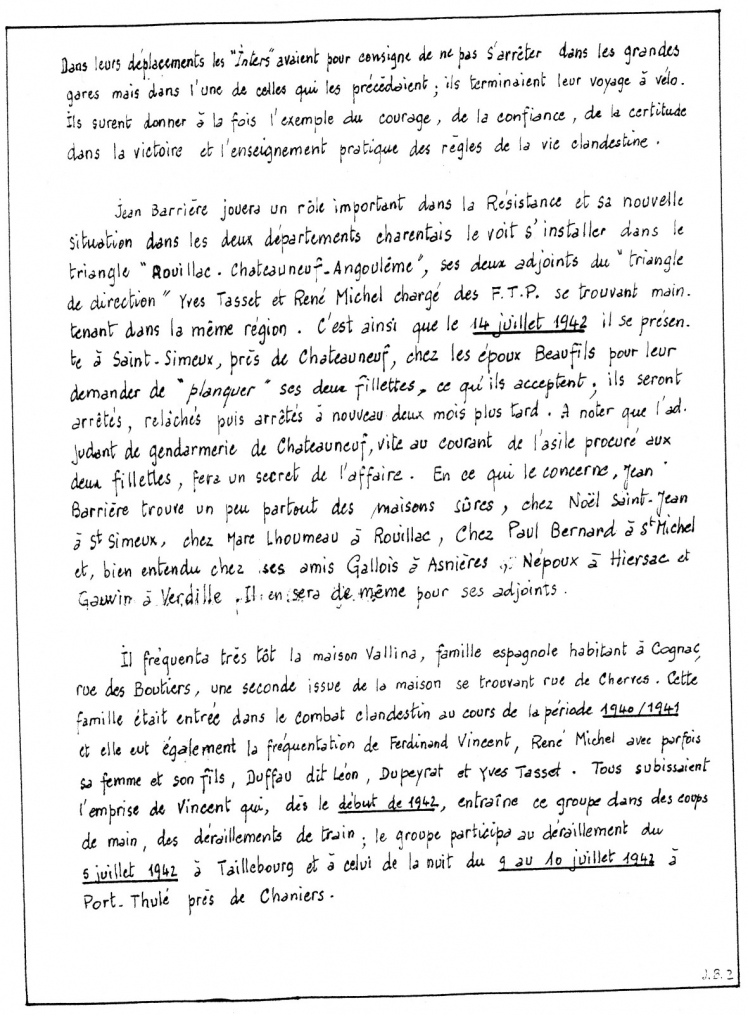 Dans leurs déplacements les "Inters" avaient pour consigne de ne pas s'arrêter dans les grandes
gares mais dans l'une de celles qui les précédaient ; ils terminaient leur voyage à vélo.
Ils surent donner à la fois l'exemple du courage, de la confiance, de la certitude
dans la victoire et l'enseignement pratique des règles de la vie clandestine.
Jean Barrière jouera un rôle important dans la Résistance et sa nouvelle
situation dans les deux départements charentais le voit s'installer dans le
triangle "Rouillac - Chateauneuf - Angoulême", ses deux adjoints du "triangle
de direction" Yves Tasset et René Michel chargé des F.T.P. se trouvant main-
tenant dans la même région. C'est ainsi que le 14 juillet 1942 il se présen-
te à Saint-Simeux, près de Chateauneuf, chez les époux Beaufils pour leur
demander de "planquer" ses deux fillettes, ce qu'ils acceptent ; ils seront
arrêtés, relâchés puis arrêtés à nouveau deux mois plus tard. A noter que l'ad-
judant de gendarmerie de Chateauneuf, vite au courant de l'asile procuré aux
deux fillettes, fera un secret de l'affaire. En ce qui le concerne, Jean
Barrière trouve un peu partout des maisons sûres, chez Noël Saint-Jean
à St Simeux, chez Marc Lhoumeau à Rouillac, Chez Paul Bernard à St Michel
et, bien entendu chez ses amis Gallois à Asnières, Népoux à Hiersac et
Gauwin à Verdille. Il en sera de même pour ses adjoints.
Il fréquenta très tôt la maison Vallina, famille espagnole habitant à Cognac,
rue des Boutiers, une seconde issue de la maison se trouvant rue de Cherves. Cette
famille était entrée dans le combat clandestin au cours de la période 1940/1941
et elle eut également la fréquentation de Ferdinand Vincent, René Michel avec parfois
sa femme et son fils, Duffau dit Léon, Dupeyrat et Yves Tasset. Tous subissaient
l'emprise de Vincent qui, dès le début de 1942, entraîne ce groupe dans des coups
de main, des déraillements de train ; le groupe participa au déraillement du
5 juillet 1942 à Taillebourg et à celui de la nuit du 9 au 10 juillet 1942 à
Port-Thulé près de Chaniers.
J.B.2